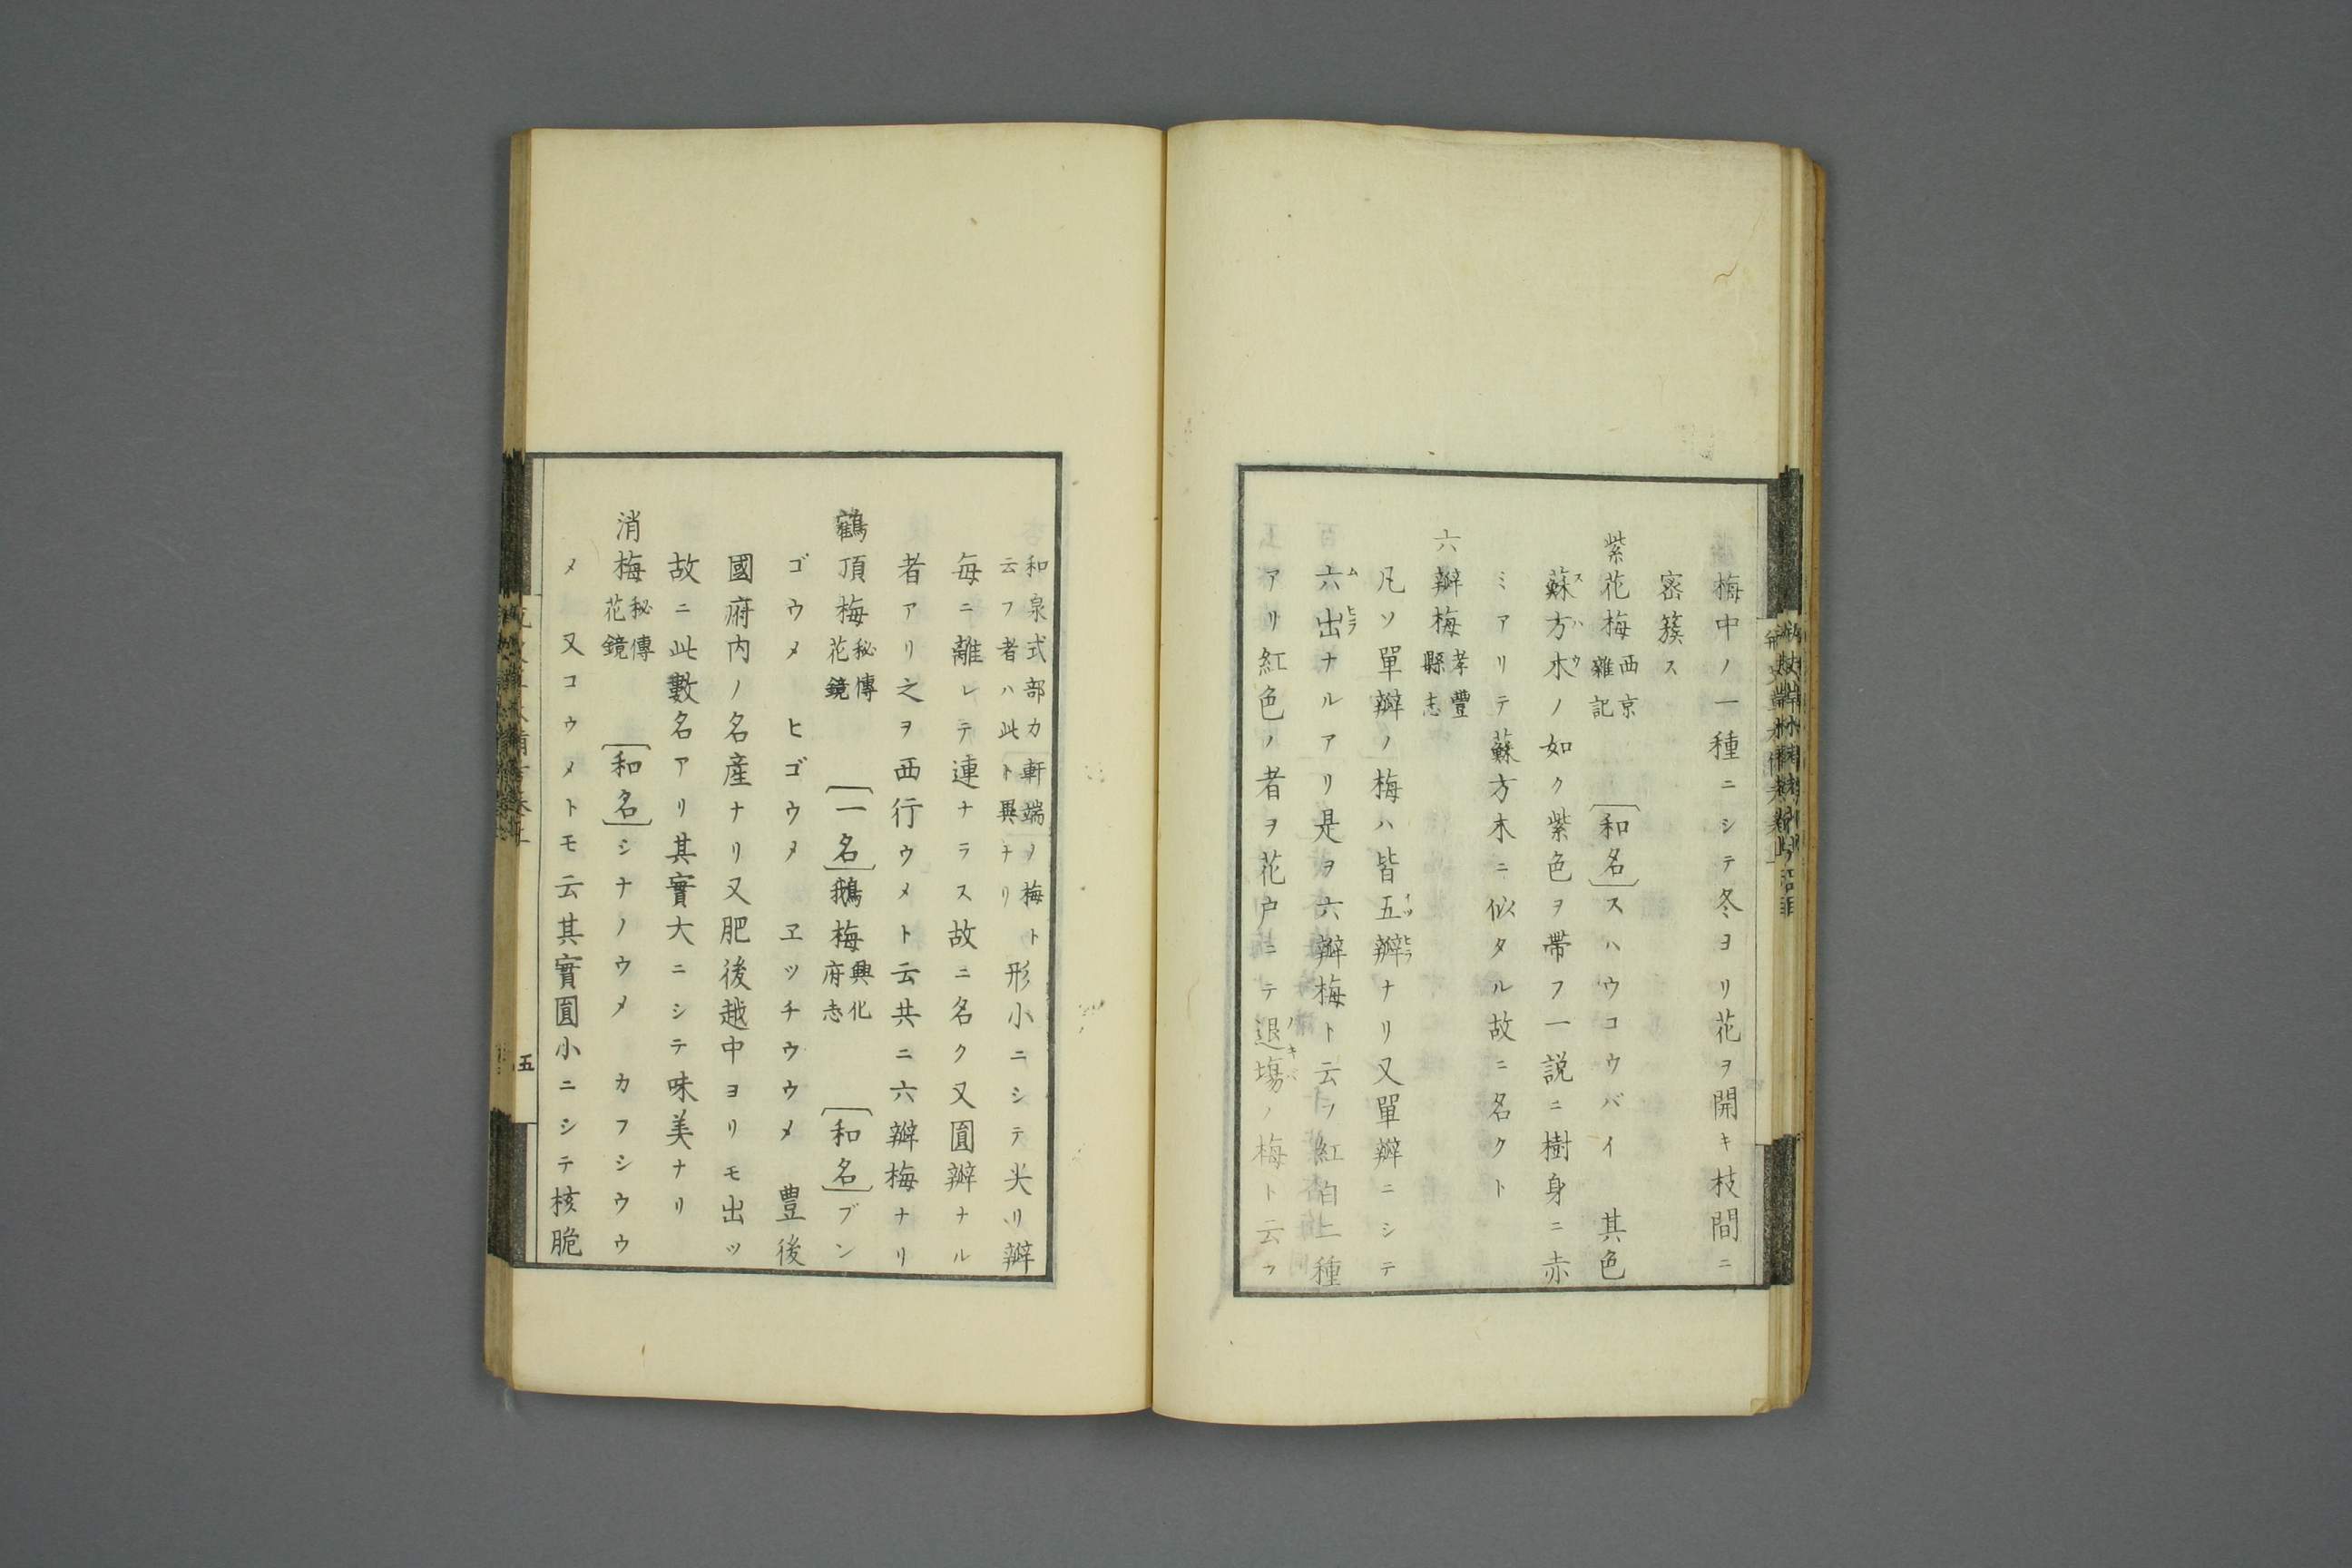 梅中ノ一種ニシテ冬ヨリ花ヲ開キ枝間ニ
密簇ス
紫花梅 西京雜記 〔和名〕スハウコウバイ 其色
蘇方木ノ如ク紫色ヲ帶フ一説ニ樹身ニ赤
ミアリテ蘇方木ニ似タル故ニ名クト
六瓣梅 孝豐縣志
凡ソ單瓣ノ梅ハ皆五瓣ナリ又單瓣ニシテ
六出ナルアリ是ヲ六瓣梅ト云フ紅白二種
アリ紅色ノ者ヲ花戸ニテ退塲ノ梅ト云フ
和泉式部カ軒端ノ梅ト形小ニシテ尖リ瓣
云フ者ハ此ト異ナリ
毎ニ離レテ連ナラス故ニ名ク又圓瓣ナル
者アリ之ヲ西行ウメト云共ニ六瓣梅ナリ
鶴頂梅 秘傳花鏡 〔一名〕鵝梅 興化府志 〔和名〕ブン
ゴウメ ヒゴウメ ヱッチウウメ 豊後
國府内ノ名産ナリ又肥後越中ヨリモ出ツ
故ニ此數名アリ其實大ニシテ味美ナリ
消梅 秘傳花鏡 〔和名〕シナノウメ カフシウウ
メ 又コウメトモ云其實圓小ニシテ核脆
五